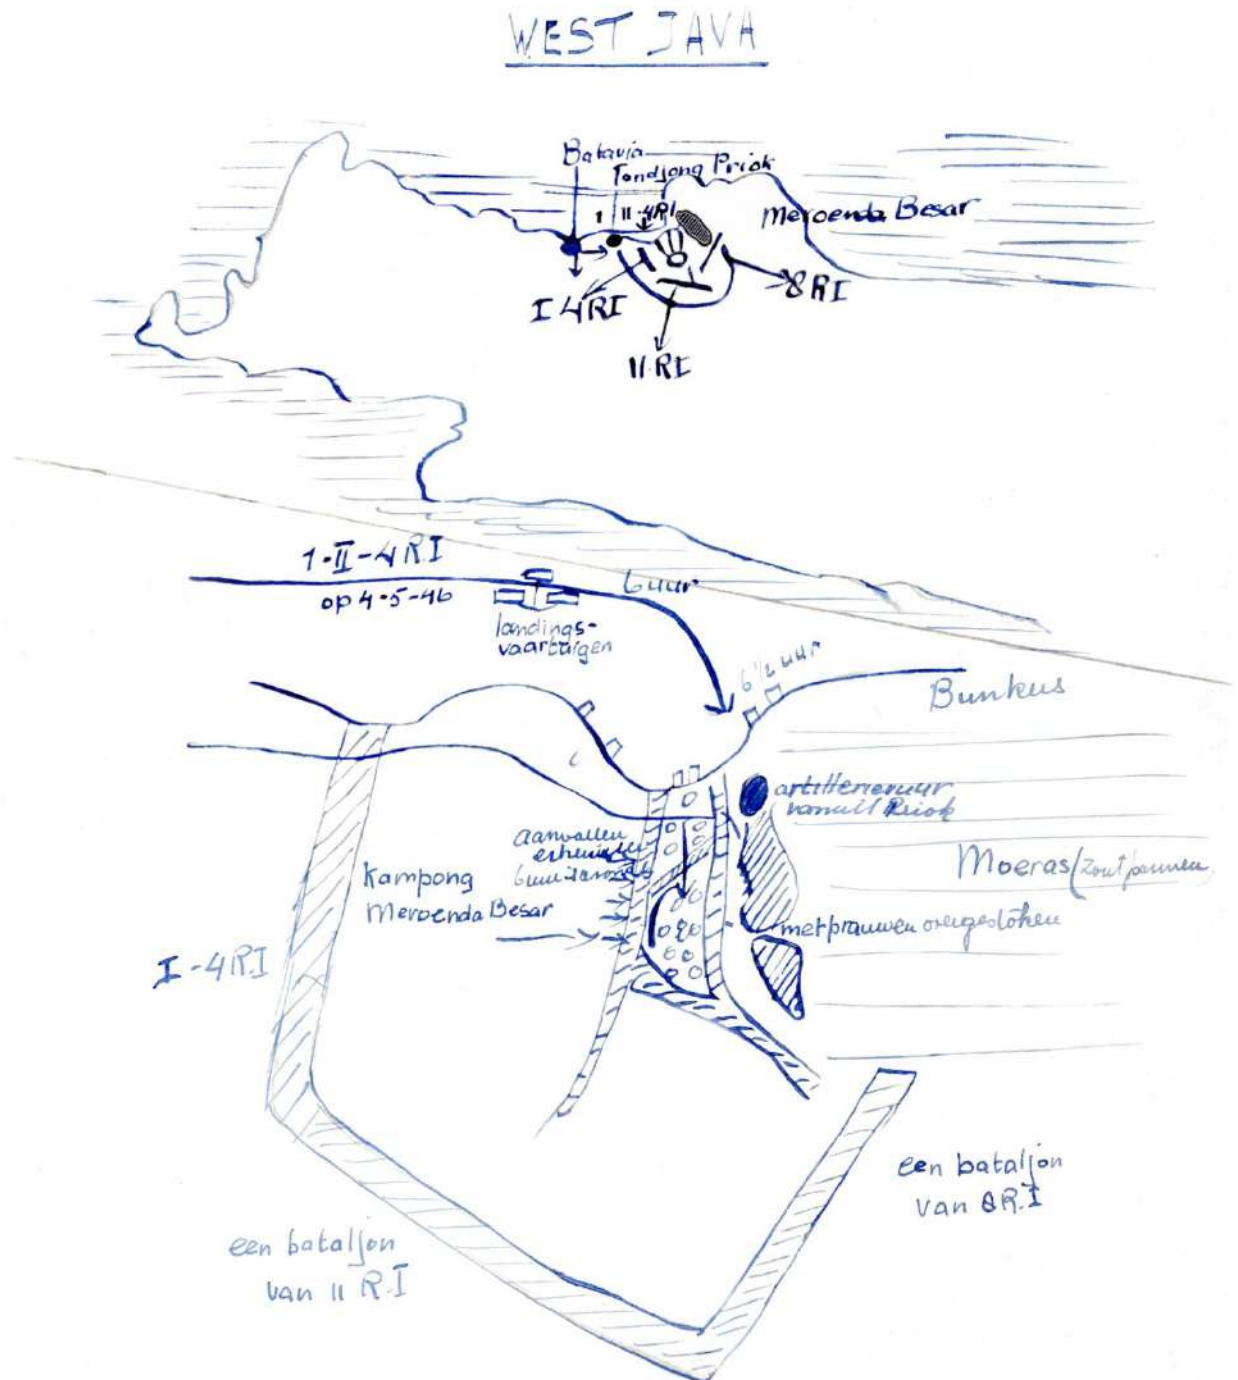 WEST JAVA
Batavia
Tandjong Priok
I II-4RI
Meroenda Besar
I 4RI
8 RI
11 RI
1-II-4 R.I
op 4-5-46
landings-
vaartuigen
6 uur
6 1/2 uur
Bunkers
artillerievuur
vanuit Priok
aanvallen
Kampong
Meroenda Besar
Moeras (zoutpannen)
met prauwen overgestoken
I-4R.I
een bataljon
van 8R.I
een bataljon
van 11 R.I